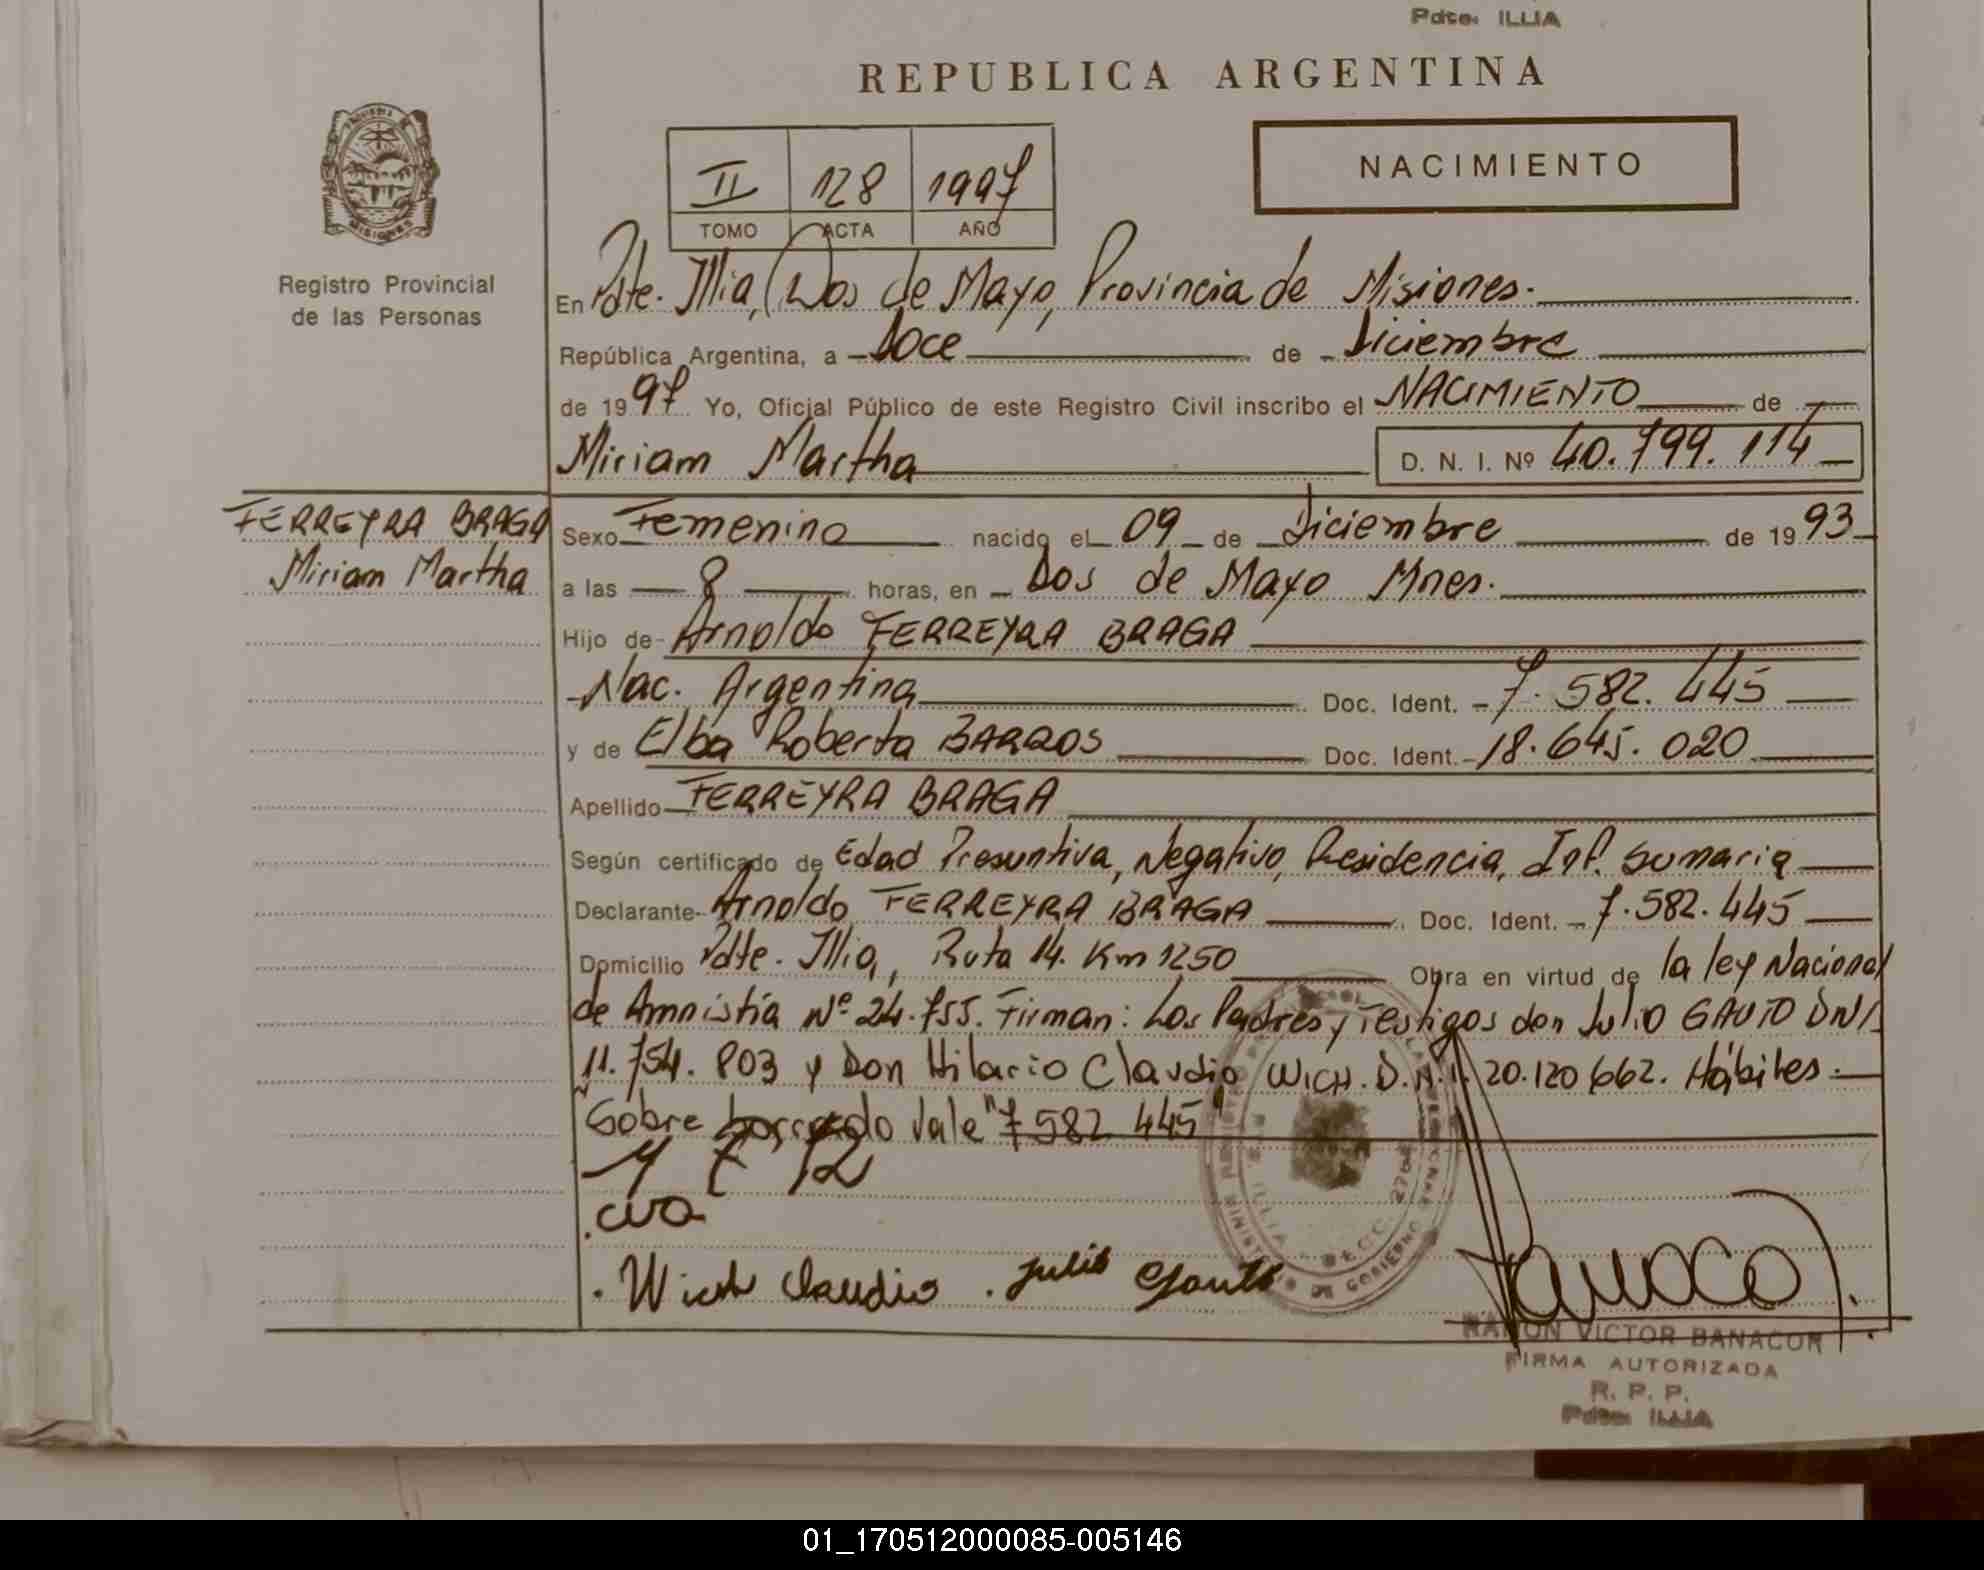 Pdte. ILLIA
REPUBLICA ARGENTINA
II 128 1997
TOMO ACTA AÑO
NACIMIENTO
Registro Provincial
de las Personas
En Pdte. Illia, (Dos de Mayo, Provincia de Misiones.
República Argentina, a Doce de Diciembre
de 1997 Yo, Oficial Público de este Registro Civil inscribo el NACIMIENTO de
Miriam Martha D. N. I. Nº 40.799.114
FERREYRA BRAGA
Miriam Martha
Sexo Femenino nacido el 09 de Diciembre de 1993
a las 8 horas, en Dos de Mayo Mnes.
Hijo de Arnoldo FERREYRA BRAGA
Nac. Argentina Doc. Ident. 7.582.445
y de Elba Roberta BARROS Doc. Ident. 18.645.020
Apellido FERREYRA BRAGA
Según certificado de Edad Presuntiva, Negativo, Residencia, Inf. Sumaria
Declarante Arnoldo FERREYRA BRAGA Doc. Ident. 7.582.445
Domicilio Pdte. Illia, Ruta 14. Km 1250 Obra en virtud de la ley Nacional
de Amnistía Nº 24.755. Firman: Los Padres y Testigos don Julio GAUTO DNI
11.754.803 y Don Hilario Claudio WICH. D.N.I. 20.120662. Hábiles.
Sobre borrado Vale "7582445"
Wich Claudio . Julio Gauto
RAMON VICTOR BANACOR
FIRMA AUTORIZADA
R. P. P.
Pdte. ILLIA
01_170512000085-005146